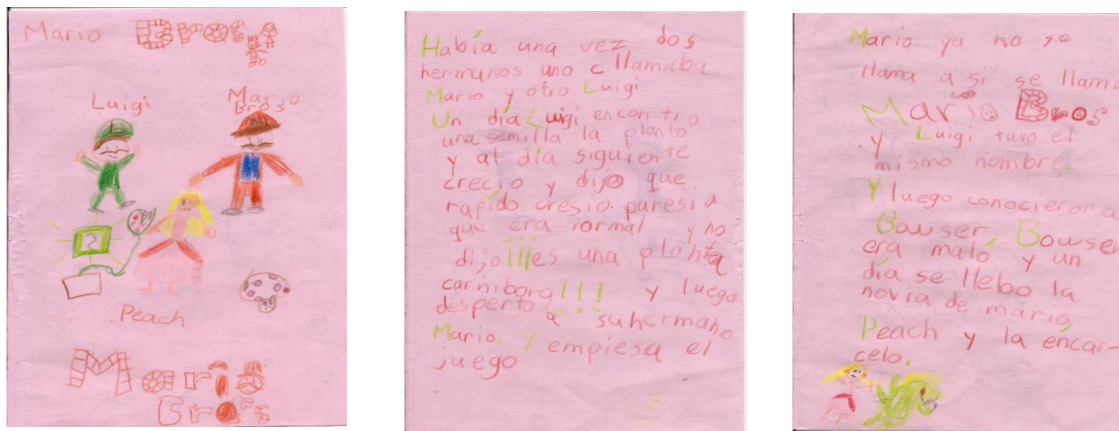 Mario Bros
Luigi
Mario
Bros
?
Peach
Mario
Bros
Había una vez dos
hermanos uno c llamaba
Mario y otro Luigi
Un día Luigi encontro
una semilla la planto
y al día siguiente
crecio y dijo que
rapído cresio. paresia
que era normal y no
dijo!!!es una planta
carnibora!!! y luego
desperto a suhermano
Mario, y empiesa el
juego
Mario ya no se
llama a si se llama
Mario Bros
y Luigi tuvo el
mismo nombre.
Y luego conocieron a
Bowser, Bowser
era malo y un
día se llebo la
novia de mario,
Peach y la encar-
celo.